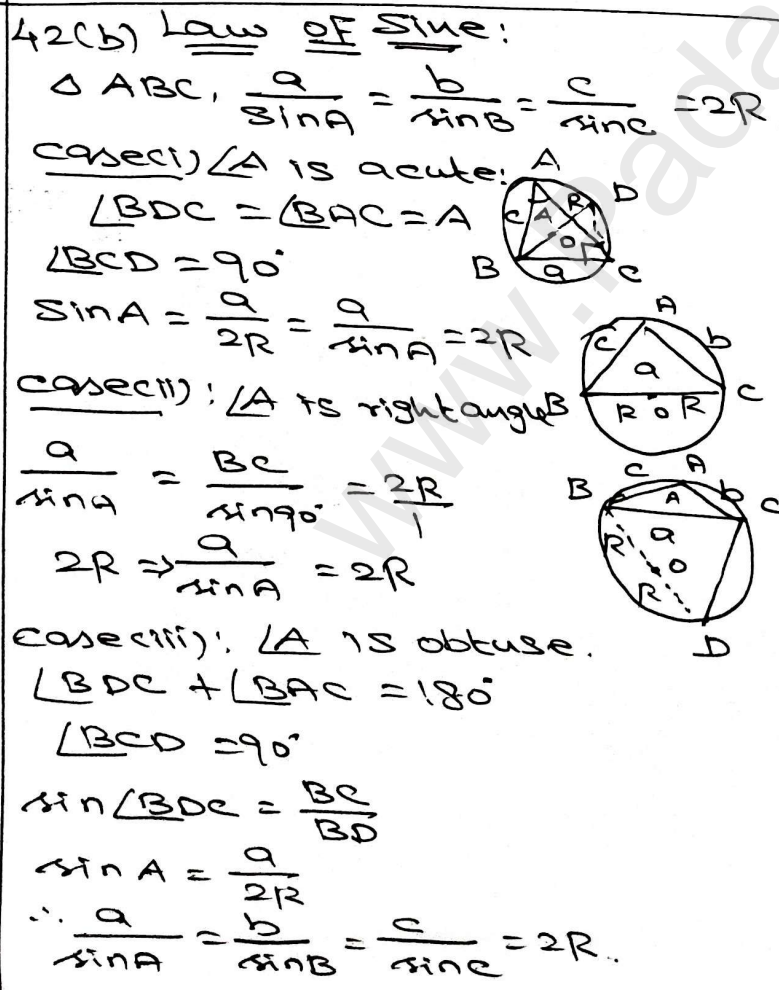 42(b) Law of Sine:
Δ ABC, a/SinA = b/sinB = c/sinC = 2R
case(i) ∠A is acute:
∠BDC = ∠BAC = A
∠BCD = 90°
A
D
R
c
A
O
B
a
C
SinA = a/2R = a/sinA = 2R
case(ii): ∠A is right angle
A
c
b
a
B
C
R O R
a/sinA = BC/sin90° = 2R/1
2R ⇒ a/sinA = 2R
c
A
B
A
b
C
a
R
O
R
D
case(iii): ∠A is obtuse.
∠BDC + ∠BAC = 180°
∠BCD = 90°
sin∠BDC = BC/BD
sin A = a/2R
∴ a/sinA = b/sinB = c/sinC = 2R.
www.Pada